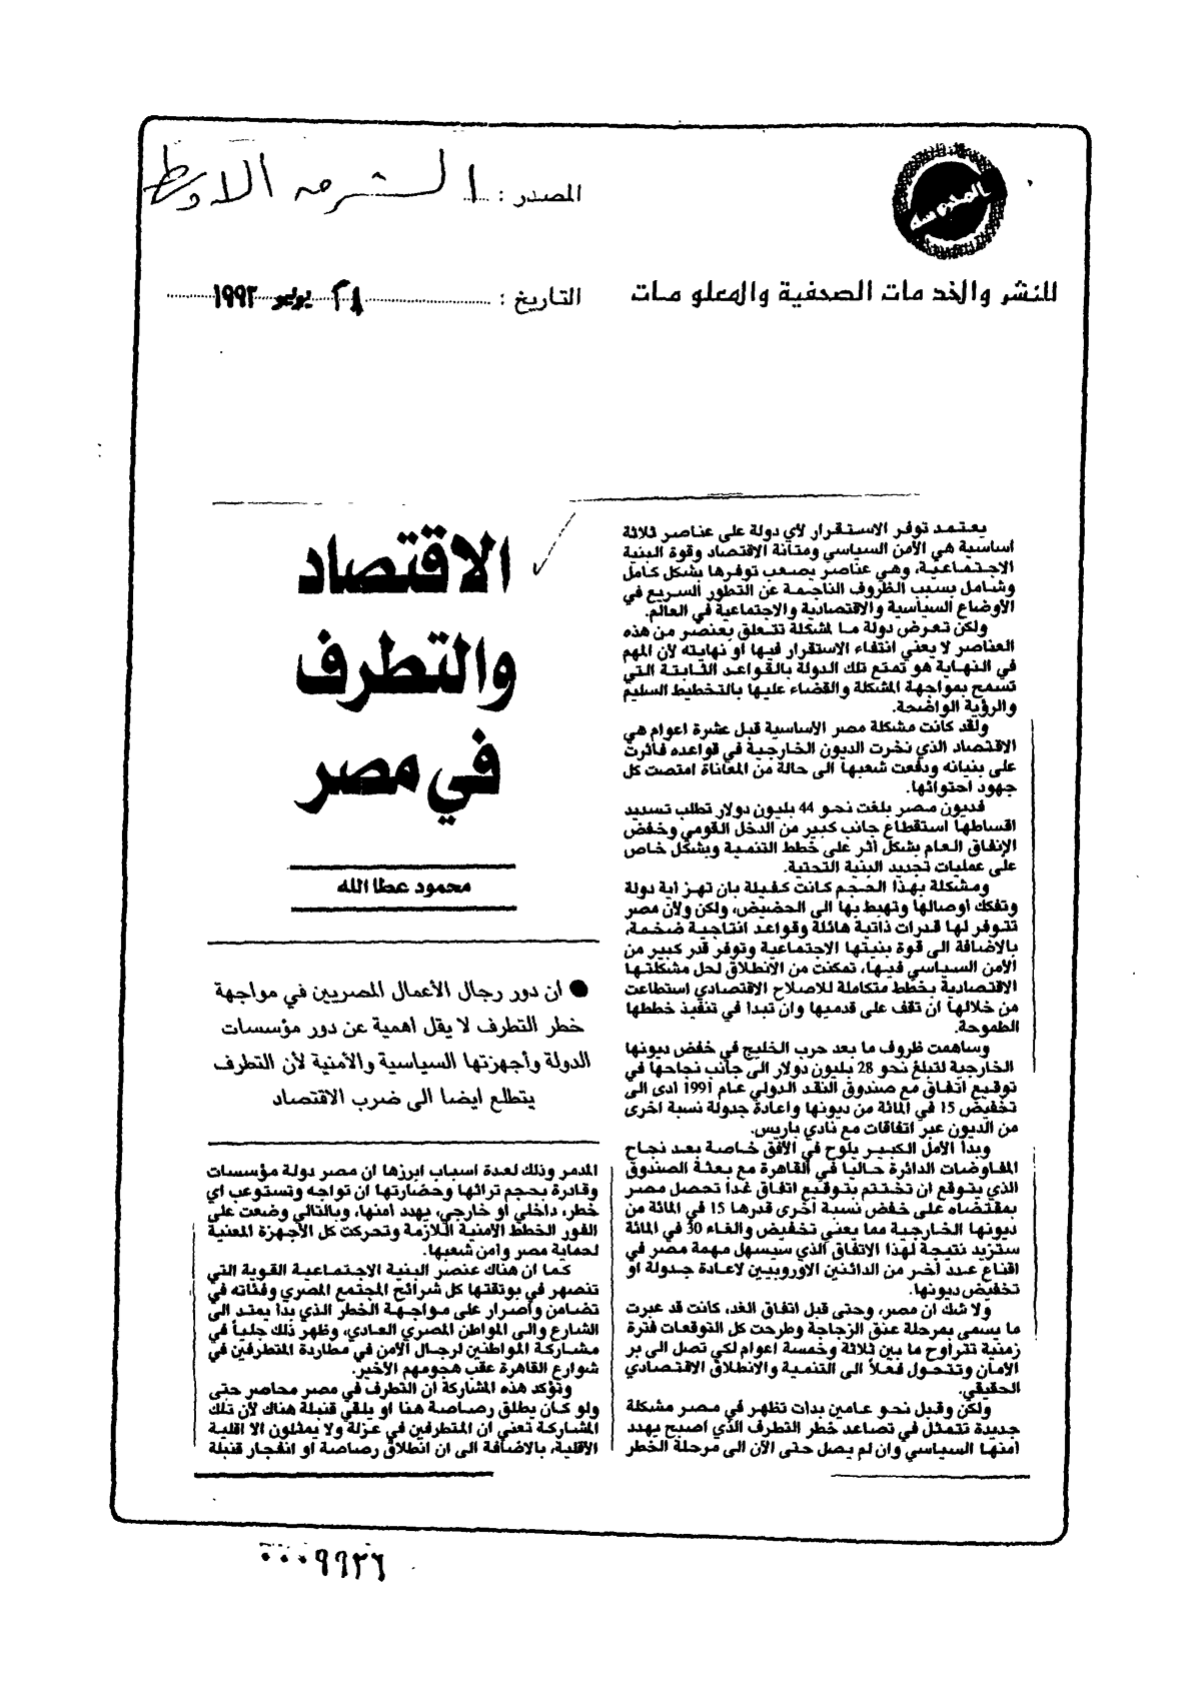 المصدر : الشرق الاوسط
للنشر والخدمات الصحفية والمعلومات
التاريخ : ٢٨ يوليو ١٩٩٣
الاقتصاد
والتطرف
في مصر
محمود عطا الله
● ان دور رجال الأعمال المصريين في مواجهة
خطر التطرف لا يقل اهمية عن دور مؤسسات
الدولة وأجهزتها السياسية والأمنية لأن التطرف
يتطلع ايضا الى ضرب الاقتصاد
يعتمد توفر الاستقرار لأي دولة على عناصر ثلاثة
اساسية هي الأمن السياسي ومتانة الاقتصاد وقوة البنية
الاجتماعية، وهي عناصر يصعب توفرها بشكل كامل
وشامل بسبب الظروف الناجمة عن التطور السريع في
الأوضاع السياسية والاقتصادية والاجتماعية في العالم.
ولكن تعرض دولة ما لمشكلة تتعلق بعنصر من هذه
العناصر لا يعني انتفاء الاستقرار فيها او نهايته لأن المهم
في النهاية هو تمتع تلك الدولة بالقواعد الثابتة التي
تسمح بمواجهة المشكلة والقضاء عليها بالتخطيط السليم
والرؤية الواضحة.
ولقد كانت مشكلة مصر الأساسية قبل عشرة اعوام هي
الاقتصاد الذي نخرت الديون الخارجية في قواعده فأثرت
على بنيانه ودفعت شعبها الى حالة من المعاناة امتصت كل
جهود احتوائها.
فديون مصر بلغت نحو 44 بليون دولار تطلب تسديد
اقساطها استقطاع جانب كبير من الدخل القومي وخفض
الإنفاق العام بشكل أثر على خطط التنمية وبشكل خاص
على عمليات تجديد البنية التحتية.
ومشكلة بهذا الحجم كانت كفيلة بان تهز أية دولة
وتفكك اوصالها وتهبط بها الى الحضيض، ولكن ولأن مصر
تتوفر لها قدرات ذاتية هائلة وقواعد انتاجية ضخمة،
بالاضافة الى قوة بنيتها الاجتماعية وتوفر قدر كبير من
الأمن السياسي فيها، تمكنت من الانطلاق لحل مشكلتها
الاقتصادية بخطط متكاملة للاصلاح الاقتصادي استطاعت
من خلالها ان تقف على قدميها وان تبدا في تنفيذ خططها
الطموحة.
وساهمت ظروف ما بعد حرب الخليج في خفض ديونها
الخارجية لتبلغ نحو 28 بليون دولار الى جانب نجاحها في
توقيع اتفاق مع صندوق النقد الدولي عام 1991 ادى الى
تخفيض 15 في المائة من ديونها واعادة جدولة نسبة اخرى
من الديون عبر اتفاقات مع نادي باريس.
وبدا الأمل الكبير يلوح في الأفق خاصة بعد نجاح
المفاوضات الدائرة حاليا في القاهرة مع بعثة الصندوق
الذي يتوقع ان تختتم بتوقيع اتفاق غدا تحصل مصر
بمقتضاه على خفض نسبة اخرى قدرها 15 في المائة من
ديونها الخارجية مما يعني تخفيض والغاء 30 في المائة
ستزيد نتيجة لهذا الاتفاق الذي سيسهل مهمة مصر في
اقناع عدد آخر من الدائنين الاوروبيين لاعادة جدولة او
تخفيض ديونها.
ولا شك ان مصر، وحتى قبل اتفاق الغد، كانت قد عبرت
ما يسمى بمرحلة عنق الزجاجة وطرحت كل التوقعات فترة
زمنية تتراوح ما بين ثلاثة وخمسة اعوام لكي تصل الى بر
الأمان وتتحول فعلا الى التنمية والانطلاق الاقتصادي
الحقيقي.
ولكن وقبل نحو عامين بدات تظهر في مصر مشكلة
جديدة تتمثل في تصاعد خطر التطرف الذي اصبح يهدد
امنها السياسي وان لم يصل حتى الآن الى مرحلة الخطر
المدمر وذلك لعدة اسباب ابرزها ان مصر دولة مؤسسات
وقادرة بحجم تراثها وحضارتها ان تواجه وتستوعب اي
خطر، داخلي او خارجي، يهدد امنها، وبالتالي وضعت على
الفور الخطط الأمنية اللازمة وتحركت كل الأجهزة المعنية
لحماية مصر وامن شعبها.
كما ان هناك عنصر البنية الاجتماعية القوية التي
تنصهر في بوتقتها كل شرائح المجتمع المصري وفئاته في
تضامن وإصرار على مواجهة الخطر الذي بدأ يمتد الى
الشارع والى المواطن المصري العادي، وظهر ذلك جليا في
مشاركة المواطنين لرجال الأمن في مطاردة المتطرفين في
شوارع القاهرة عقب هجومهم الأخير.
وتؤكد هذه المشاركة ان التطرف في مصر محاصر حتى
ولو كان يطلق رصاصة هنا او يلقي قنبلة هناك لأن تلك
المشاركة تعني ان المتطرفين في عزلة ولا يمثلون الا اقلية
الاقلية، بالاضافة الى ان انطلاق رصاصة او انفجار قنبلة
٠٠٠٩٩٢٦